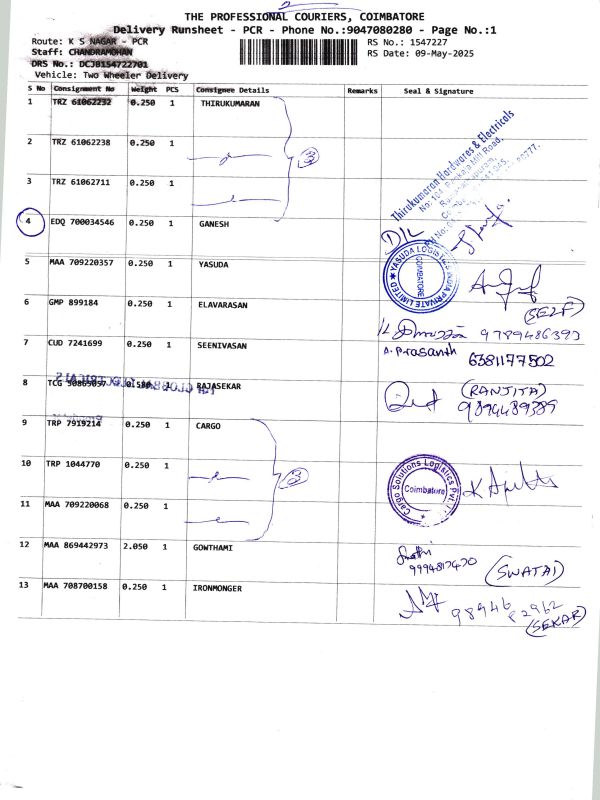 THE PROFESSIONAL COURIERS, COIMBATORE
Delivery Runsheet - PCR - Phone No.:9047080280 - Page No.:1
Route: K S NAGAR - PCR
RS No.: 1547227
Staff: CHANDRAMOHAN
RS Date: 09-May-2025
DRS No.: DCJB154722701
Vehicle: Two Wheeler Delivery
S No Consignment No Weight PCS Consignee Details Remarks Seal & Signature
1 TRZ 61062232 0.250 1 THIRUKUMARAN
2 TRZ 61062238 0.250 1
3 TRZ 61062711 0.250 1
3
Thirukumaran Hardwares & Electricals
4 EDQ 700034546 0.250 1 GANESH
D/L
5 MAA 709220357 0.250 1 YASUDA
YASUDA LOGISTICS INDIA PRIVATE LIMITED
COIMBATORE
(SELF)
6 GMP 899184 0.250 1 ELAVARASAN
9789486393
7 CUD 7241699 0.250 1 SEENIVASAN
A. Prasanth 6381177502
8 TCG 50865057 0.500 1 RAJASEKAR
(RANJITA)
9894489389
9 TRP 7919214 0.250 1 CARGO
10 TRP 1044770 0.250 1
3
Cargo Solutions Logistics Pvt. Ltd.
Coimbatore
11 MAA 709220068 0.250 1
12 MAA 869442973 2.050 1 GOWTHAMI
(SWATAI)
13 MAA 708700158 0.250 1 IRONMONGER
98946
82962
(SEKAR)